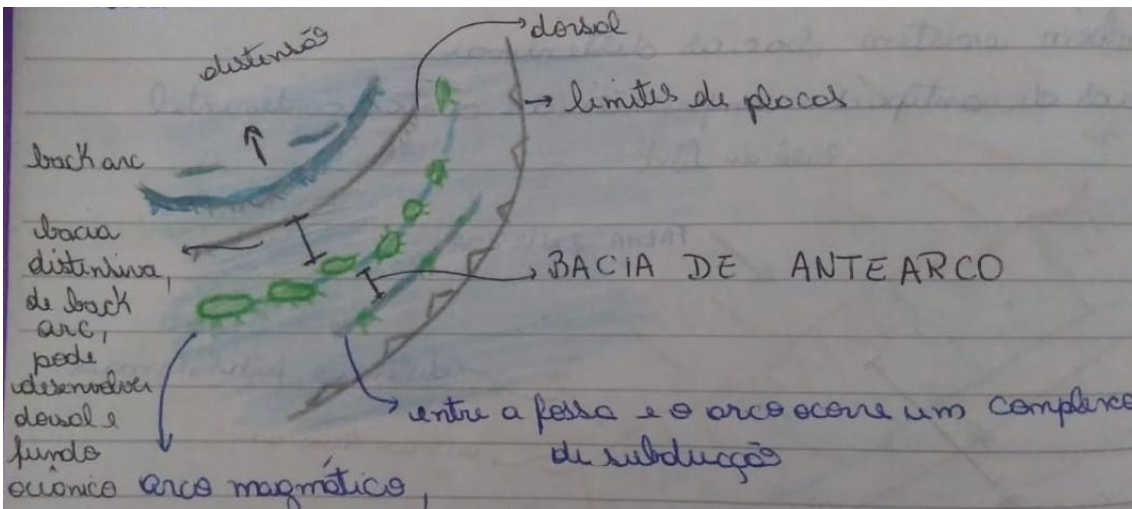 dorsal
distensão
→ limites de placas
back arc
bacia
distensiva,
de back
arc,
pode
desenvolver
dorsal e
fundo
oceônico
BACIA DE ANTEARCO
entre a fossa e o arco ocorre um complexo
de subducção
arco magmático,